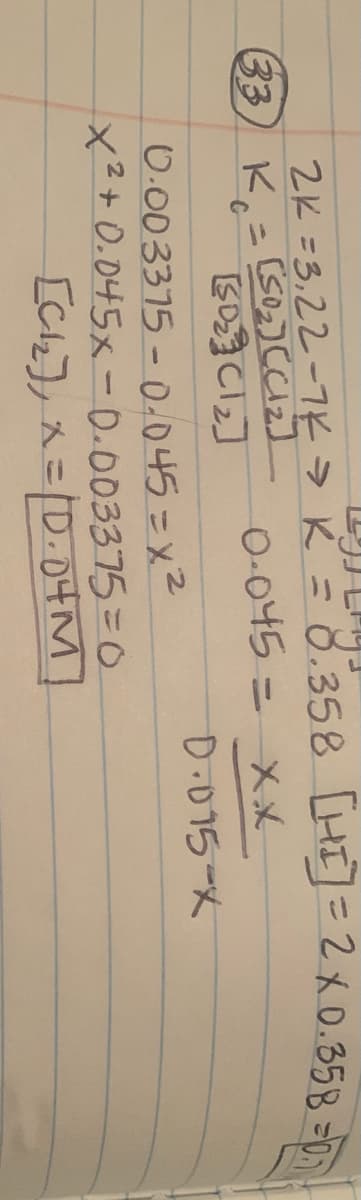 2K = 3.22 - 7K → K = 0.358 [HI] = 2 x 0.358 =
(33) Kc = [SO2][Cl2] / [SO2Cl2] 0.045 = x.x / 0.075-x
0.003375 - 0.045 = x²
x² + 0.045x - 0.003375 = 0
[Cl2], x = 0.04M